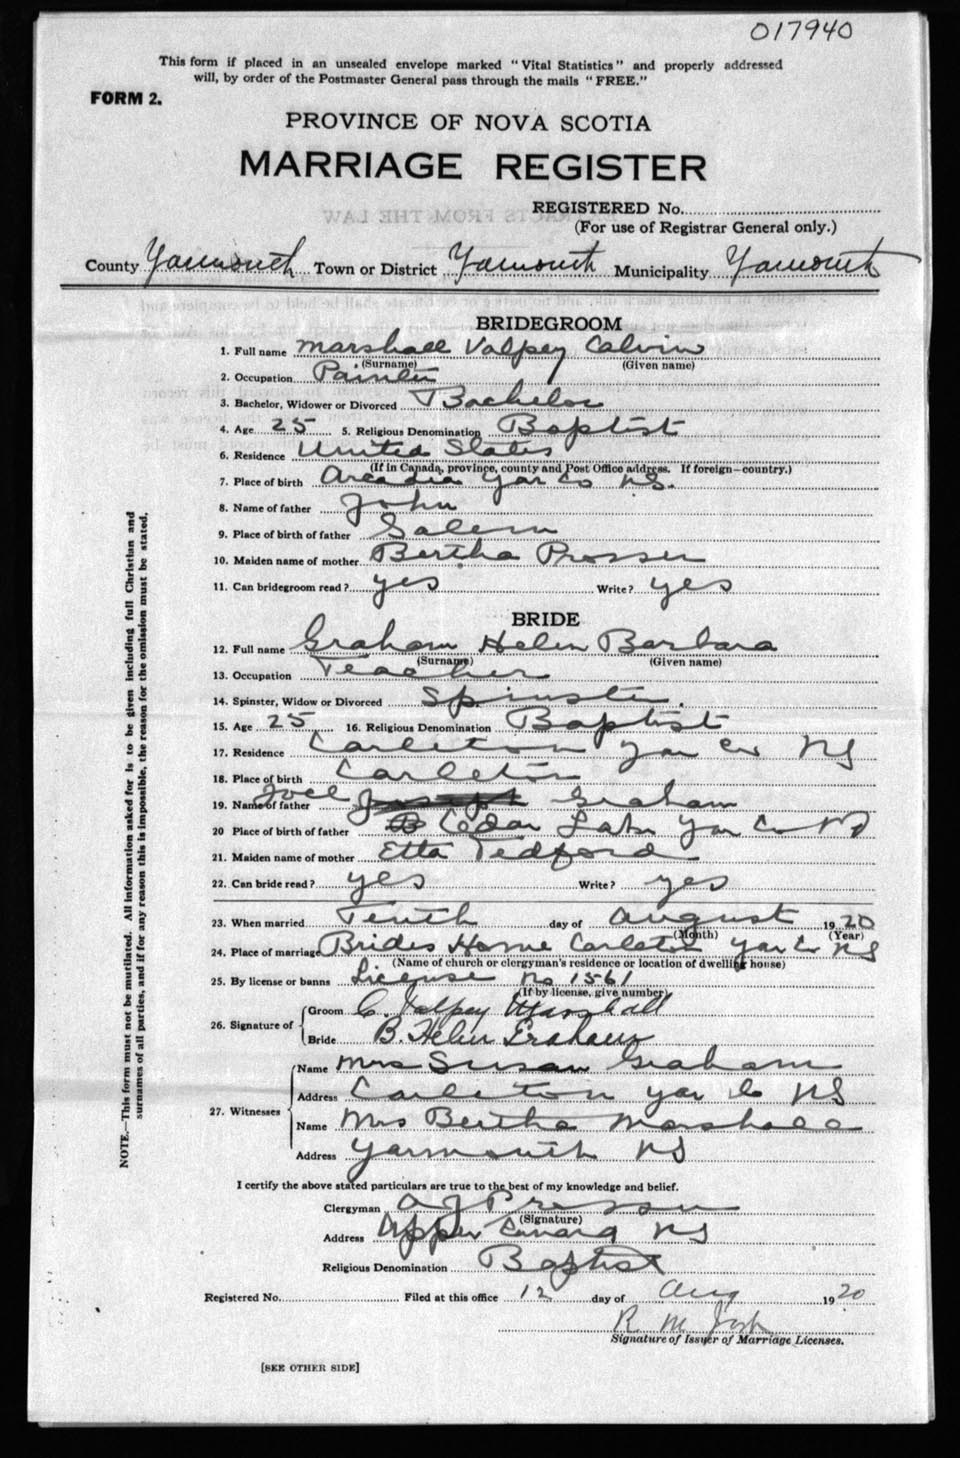 017940
This form if placed in an unsealed envelope marked "Vital Statistics" and properly addressed
will, by order of the Postmaster General pass through the mails "FREE."
FORM 2.
PROVINCE OF NOVA SCOTIA
MARRIAGE REGISTER
REGISTERED No.
(For use of Registrar General only.)
County Yarmouth Town or District Yarmouth Municipality Yarmouth
BRIDEGROOM
1. Full name Marshall Valpey Calvin
(Surname) (Given name)
2. Occupation Painter
3. Bachelor, Widower or Divorced Bachelor
4. Age 25 5. Religious Denomination Baptist
6. Residence United States
(If in Canada, province, county and Post Office address. If foreign—country.)
7. Place of birth Arcadia Yar Co NS.
8. Name of father John
9. Place of birth of father Salem
10. Maiden name of mother Bertha Prosser
11. Can bridegroom read? yes Write? yes
BRIDE
12. Full name Graham Helen Barbara
(Surname) (Given name)
13. Occupation Teacher
14. Spinster, Widow or Divorced Spinster.
15. Age 25 16. Religious Denomination Baptist
17. Residence Carleton Yar Co NS
18. Place of birth Carleton
19. Name of father Joel Joseph Graham
20 Place of birth of father Cedar Lake Yar Co NS
21. Maiden name of mother Etta Tedford
22. Can bride read? yes Write? yes
23. When married Tenth day of August 1920
(Month) (Year)
24. Place of marriage Brides Home Carleton Yar Co NS
(Name of church or clergyman's residence or location of dwelling house)
25. By license or banns License No 1561
(If by license, give number)
26. Signature of
Groom C. Valpey Marshall
Bride B. Helen Graham
27. Witnesses
Name Mrs Susan Graham
Address Carleton Yar Co NS
Name Mrs Bertha Marshall
Address Yarmouth NS
I certify the above stated particulars are true to the best of my knowledge and belief.
Clergyman A J Prosser
(Signature)
Address Upper Canard NS
Religious Denomination Baptist
Registered No. Filed at this office 12 day of Aug 1920
R. M.
Signature of Issuer of Marriage Licenses.
[SEE OTHER SIDE]
NOTE.—This form must not be mutilated. All information asked for is to be given including full Christian and
surnames of all parties, and if for any reason this is impossible, the reason for the omission must be stated.